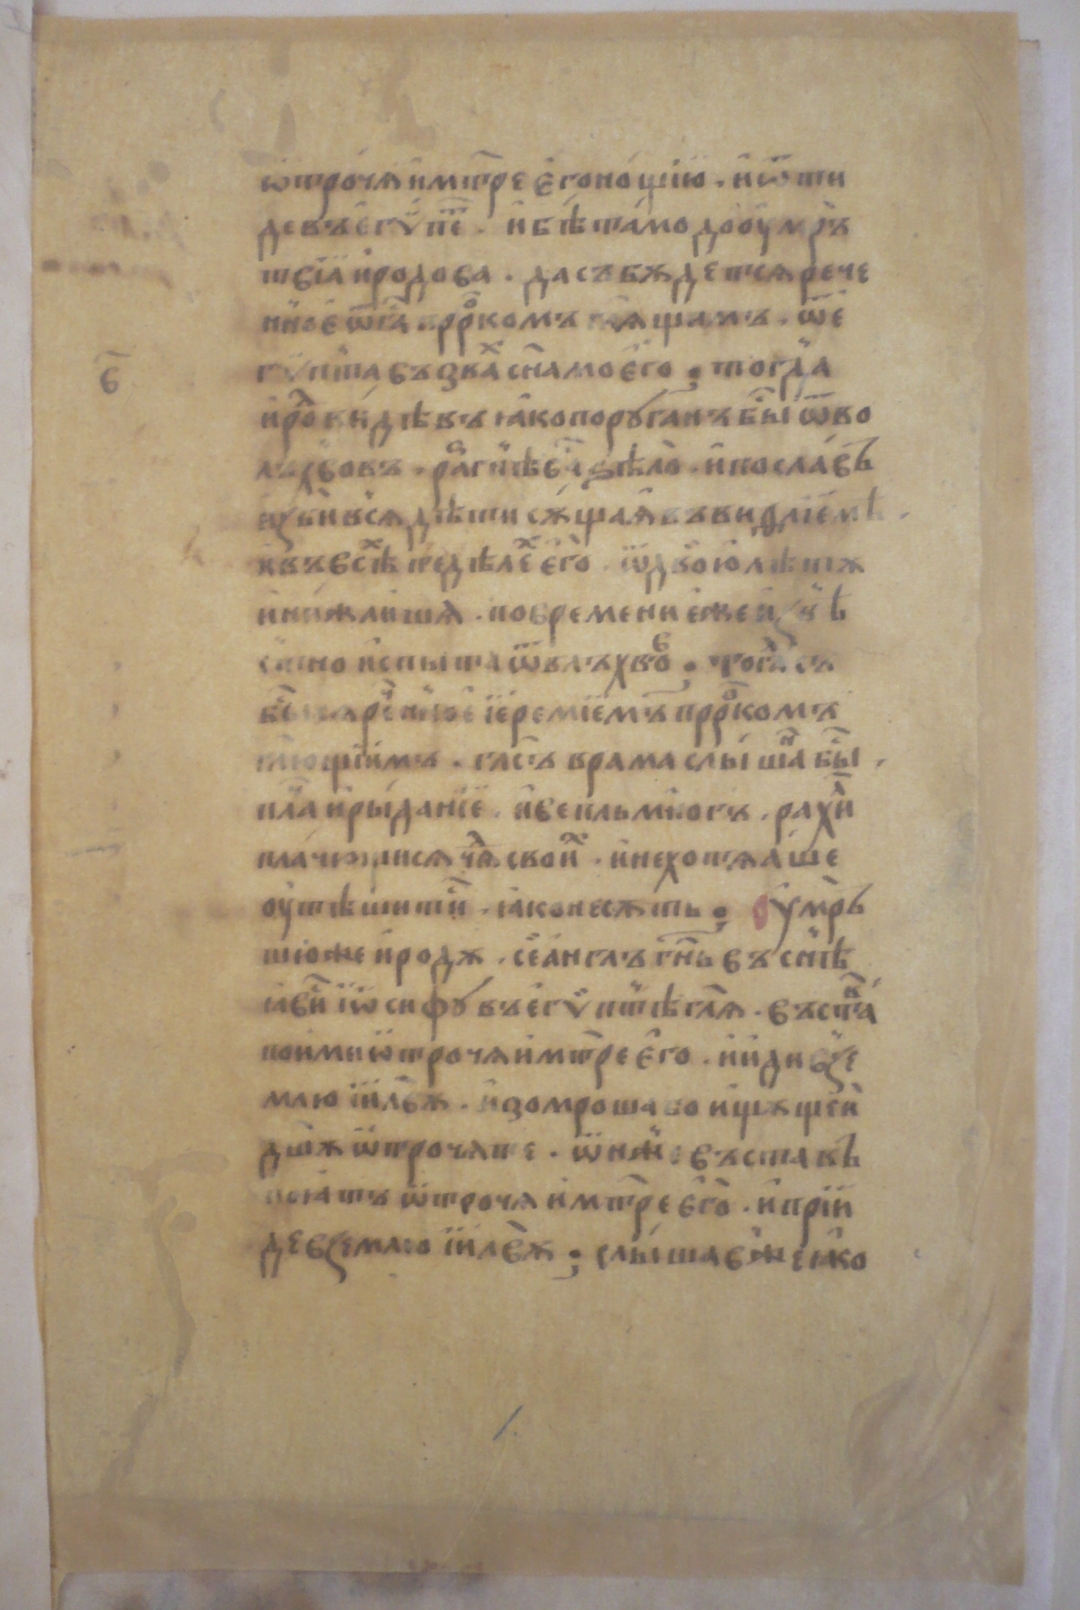 ѿтрочѧ и҆мт҃ре є҆гонощїю · и҆ѿти
девъє҆гѷпе҃ · и҆бѣтамо доѹ҆мръ
твїа и҆родова · дасъбѫдетсѧрече
нное ѿг҃а прр҃комъ глѧщамъ · ѿе
гѷпта възвах сн҃амоего ⁏ тогда
и҆рѡ видѣвъ ꙗкопорꙋганъ бы҃ ѿвъ
лъхвовъ · разгнѣва ѕѣло · и҆пославъ
и҆зби всѧ дѣти сѫщаѧ въвиѳлїемѣ ·
и҆въвсѣх предѣлех є҆го · ѿдвою лѣтѫ
и҆нижаишѧ · повремени є҆же
и҆спыта ѿвлъхвѡв ⁏ тогда съ
реченное і҆еремїемъ прр҃комъ
глющїимъ · глсъ врама слышан бы҃ ·
плач и҆рыданїе · и҆вепль многъ · рахи
плачющисѧ чѧд свои҆х · и҆нехотѧаше
ѹ҆тѣшити · ꙗконесѫть ⁏ Ѹ҆мръ
шюже и҆родѫ · се а҆нг҃лъ гн҃ь въ снѣ
ꙗви і҆ѡсифꙋ въє҆гѷптѣ гл҃ѧ · въстав
поими ѿтрочѧ и҆мт҃ре є҆го · и҆иди взе
млю і҆и҃лвѫ · и҆зомроша бо и҆щѫщеи
дш҃ѫ ѿтрочѧте · ѡ҆нже въставъ
поꙗтъ ѿтрочѧ и҆мт҃ре є҆го · и҆прїи
де вземлю і҆и҃лвѫ ⁏ слышавже ꙗко
в҃